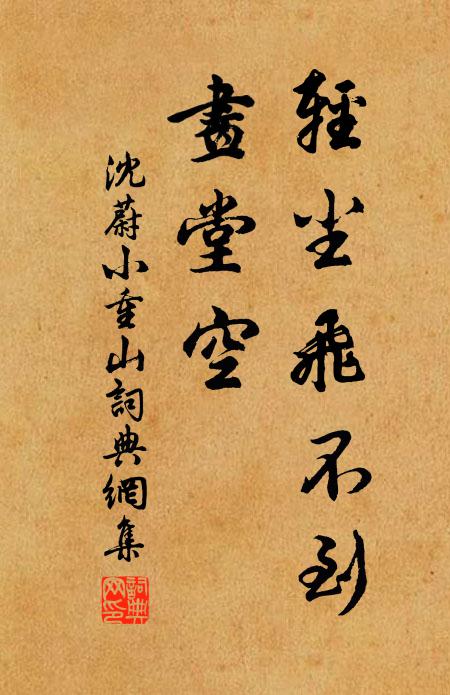 輕尘飛不到
畫堂空
沈蔚小重山詞典網集
詞典网印